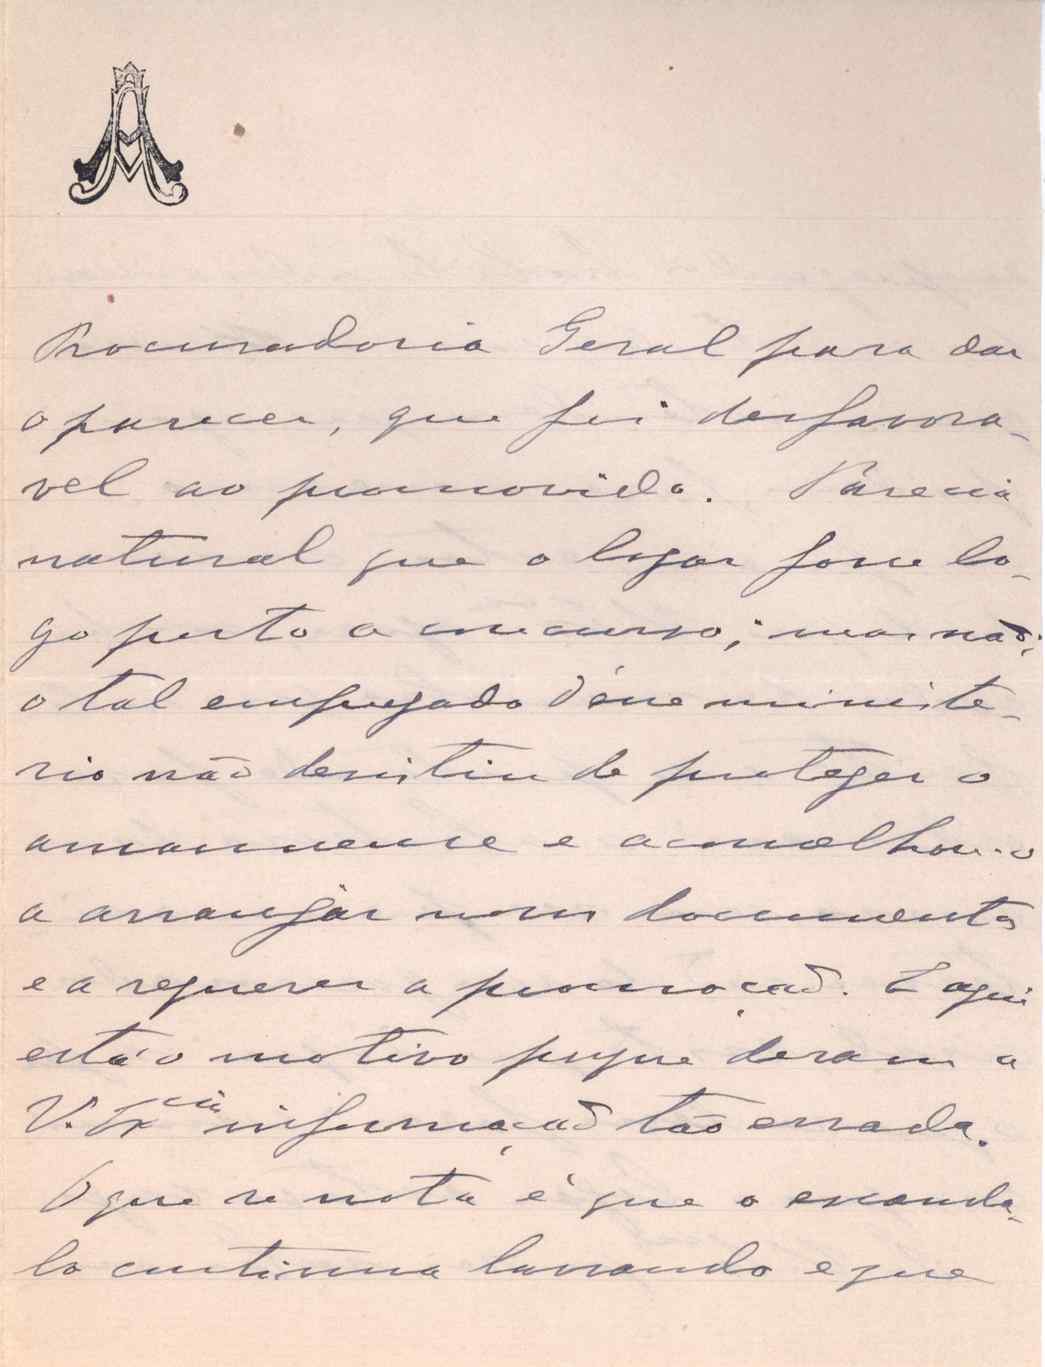 A
Procuradoria Geral para dar
o parecer, que foi desfavora-
vel ao promovido. Parecia
natural que o logar fosse lo-
go posto a concurso; mas não;
o tal empregado d'esse ministe-
rio não desistiu de proteger o
amanuense e aconselhou-o
a arranjar novos documentos
e a requerer a promoção. E aqui
está o motivo porque deram a
V. Ex.cia informação tão errada.
O que se nota é que o escanda-
lo continua lavrando e que